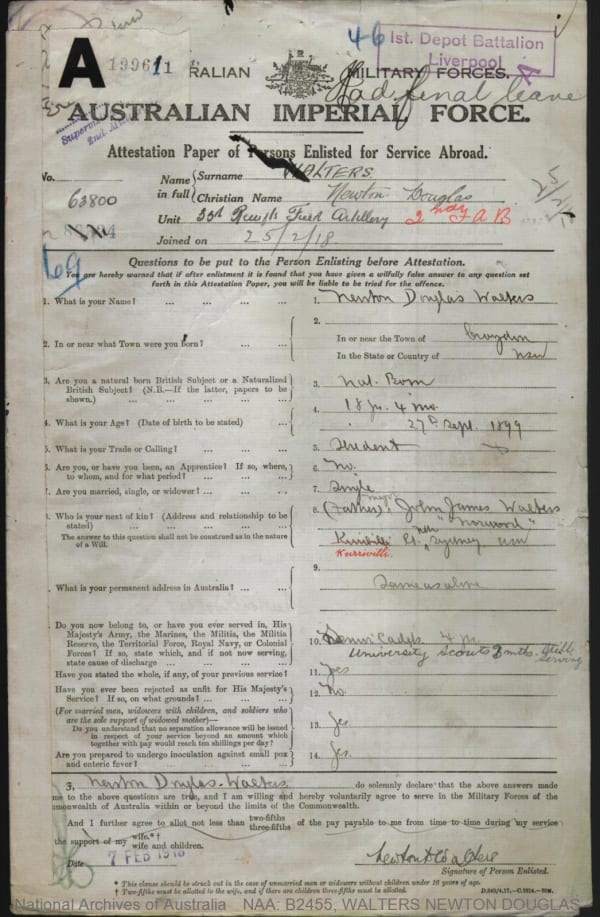 46
1st. Depot Battalion
Liverpool
A
19961 1
RALIAN MILITARY FORCES.
Had final leave
AUSTRALIAN IMPERIAL FORCE.
Attestation Paper of Persons Enlisted for Service Abroad.
No. 63800
Name in full
Surname WALTERS.
Christian Name Newton Douglas
Unit Field Artillery 2 FAB
Joined on 25/2/18
69
Questions to be put to the Person Enlisting before Attestation.
You are hereby warned that if after enlistment it is found that you have given a wilfully false answer to any question set
forth in this Attestation Paper, you will be liable to be tried for the offence.
1. What is your Name? ... ... ... ... 1. Newton Douglas Walters
2. In or near what Town were you born? ... ... 2. In or near the Town of Croydon
In the State or Country of NSW
3. Are you a natural born British Subject or a Naturalized
British Subject? (N.B.—If the latter, papers to be
shown.) ... ... ... ... ... 3. Nat. Born
4. What is your Age? (Date of birth to be stated) ... 4. 18 yr. 4 mo.
27th Sept. 1899
5. What is your Trade or Calling? ... ... ... 5. Student
6. Are you, or have you been, an Apprentice? If so, where,
to whom, and for what period? ... ... ... 6. No.
7. Are you married, single, or widower? ... ... 7. Single
8. Who is your next of kin? (Address and relationship to be
stated) ... ... ... ... ... 8. (Father) Major John James Walters
"Norwood"
Pt. Sydney NSW
Kurriville.
The answer to this question shall not be construed as in the nature
of a Will.
9. What is your permanent address in Australia? ... ... 9. Same as above
Do you now belong to, or have you ever served in, His
Majesty's Army, the Marines, the Militia, the Militia
Reserve, the Territorial Force, Royal Navy, or Colonial
Forces? If so, state which, and if not now serving,
state cause of discharge ... ... ... ... 10. Senior Cadets 4 yr.
University Scouts 3 mths. Still
serving
Have you stated the whole, if any, of your previous service? 11. Yes
Have you ever been rejected as unfit for His Majesty's
Service? If so, on what grounds? ... ... ... 12. No
(For married men, widowers with children, and soldiers who
are the sole support of widowed mother)—
Do you understand that no separation allowance will be issued
in respect of your service beyond an amount which
together with pay would reach ten shillings per day? 13. Yes.
Are you prepared to undergo inoculation against small pox
and enteric fever? ... ... ... ... 14. Yes.
I, Newton Douglas Walters do solemnly declare that the above answers made
me to the above questions are true, and I am willing and hereby voluntarily agree to serve in the Military Forces of the
mmonwealth of Australia within or beyond the limits of the Commonwealth.
And I further agree to allot not less than two-fifths
three-fifths of the pay payable to me from time to time during my service
the support of my wife.*†
wife and children.
Date 7 FEB 1918
Newton D Walters
Signature of Person Enlisted.
* This clause should be struck out in the case of unmarried men or widowers without children under 16 years of age.
† Two-fifths must be allotted to the wife, and if there are children three-fifths must be allotted.
National Archives of Australia NAA: B2455, WALTERS NEWTON DOUGLAS